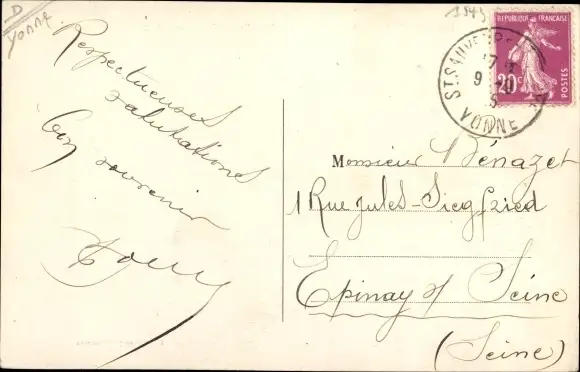 D
YONNE
Respectueuses
salutations
bon souvenir
REPUBLIQUE FRANÇAISE
20c
POSTES
ST. SAUVEUR
17
9
YONNE
Monsieur Bénazet
1 Rue Jules-Siegfried
Epinay s/ Seine
(Seine)